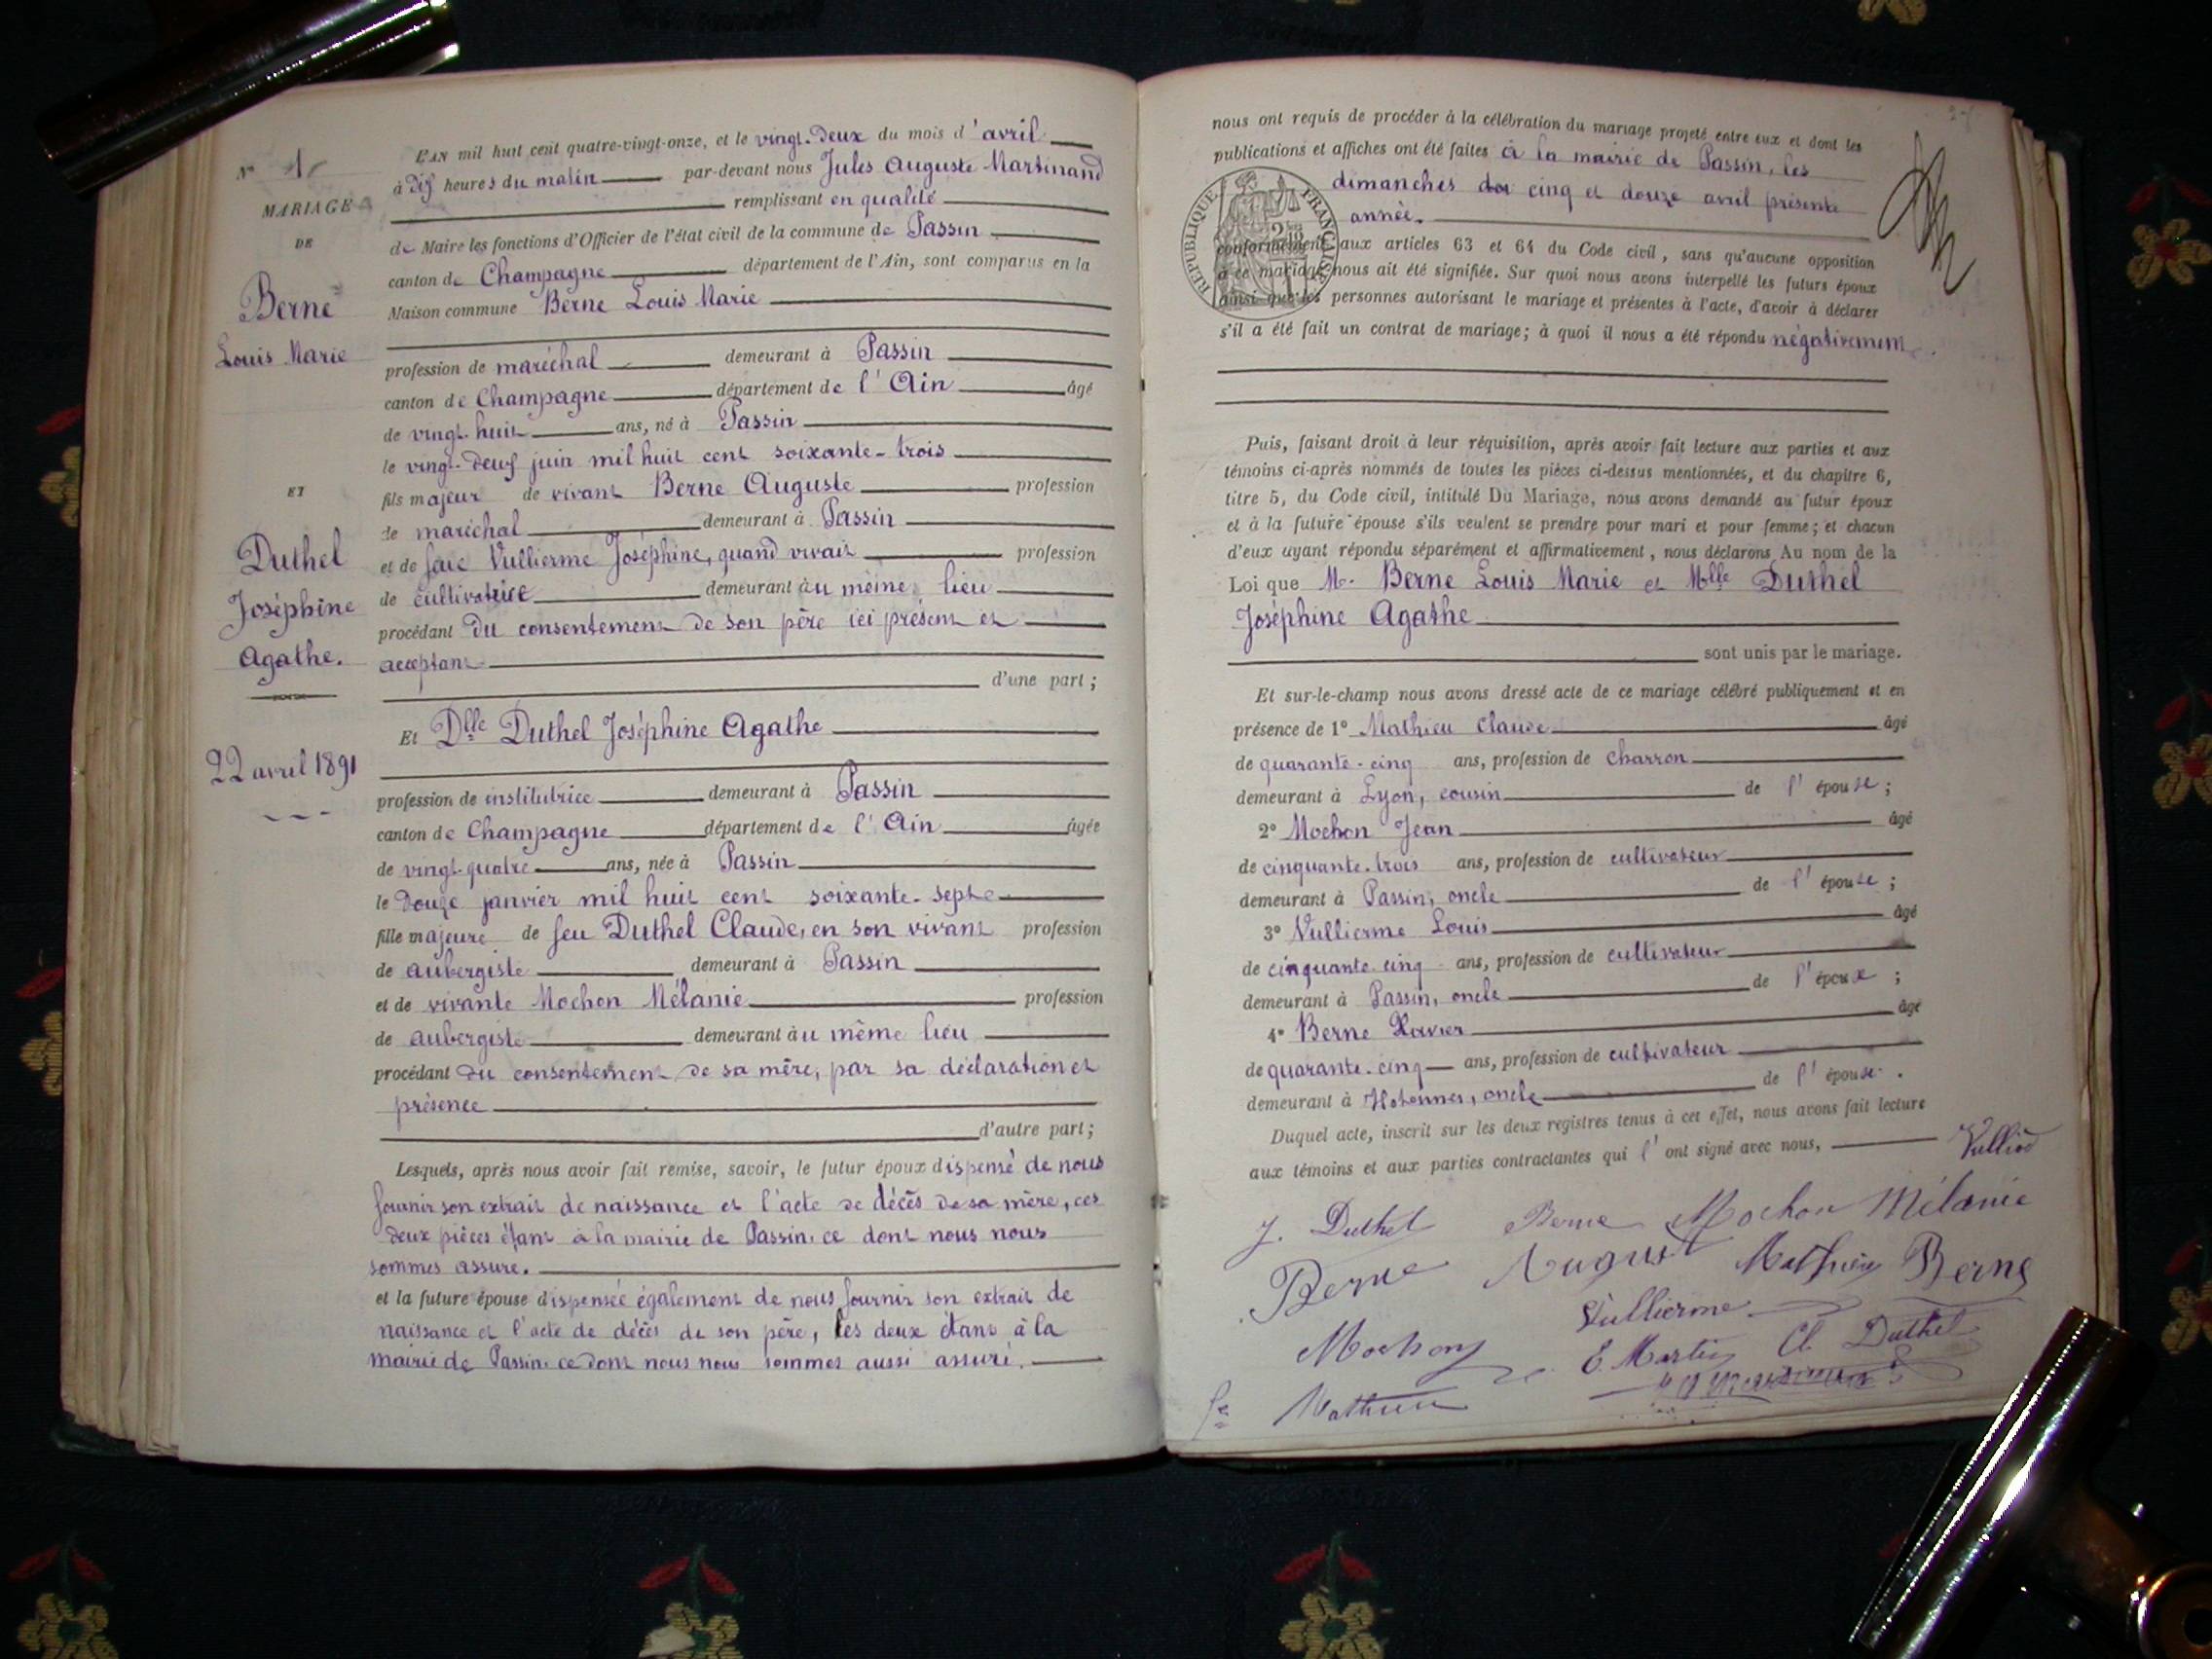 N° 1
MARIAGE
DE
Berne
Louis Marie
ET
Duthel
Joséphine
Agathe.
22 avril 1891
L'AN mil huit cent quatre-vingt-onze, et le vingt-deux du mois d'avril
à dix heures du matin par-devant nous Jules Auguste Martinand
remplissant en qualité
de Maire les fonctions d'Officier de l'état civil de la commune de Passin
canton de Champagne département de l'Ain, sont comparus en la
Maison commune Berne Louis Marie
profession de maréchal demeurant à Passin
canton de Champagne département de l'Ain âgé
de vingt-huit ans, né à Passin
le vingt-deux juin mil huit cent soixante-trois
fils majeur de vivant Berne Auguste profession
de maréchal demeurant à Passin
et de feue Vullierme Joséphine, quand vivait profession
de cultivatrice demeurant àu même lieu
procédant du consentement de son père ici présent et
acceptant
d'une part ;
Et Dlle Duthel Joséphine Agathe
profession de institutrice demeurant à Passin
canton de Champagne département de l'Ain âgée
de vingt-quatre ans, née à Passin
le douze janvier mil huit cent soixante-septe
fille majeure de feu Duthel Claude, en son vivant profession
de aubergiste demeurant à Passin
et de vivante Mochon Mélanie profession
de aubergiste demeurant àu même lieu
procédant du consentement de sa mère, par sa déclaration et
présence
d'autre part ;
Lesquels, après nous avoir fait remise, savoir, le futur époux dispensé de nous
fournir son extrait de naissance et l'acte de décès de sa mère, ces
deux pièces étant à la mairie de Passin. ce dont nous nous
sommes assuré.
et la future épouse dispensée également de nous fournir son extrait de
naissance et l'acte de décès de son père, les deux étant à la
mairie de Passin. ce dont nous nous sommes aussi assuré.
nous ont requis de procéder à la célébration du mariage projeté entre eux et dont les
publications et affiches ont été faites à la mairie de Passin, les
dimanches cinq et douze avril présente
année.
RÉPUBLIQUE FRANÇAISE
conformément aux articles 63 et 64 du Code civil, sans qu'aucune opposition
à ce mariage nous ait été signifiée. Sur quoi nous avons interpellé les futurs époux
ainsi que les personnes autorisant le mariage et présentes à l'acte, d'avoir à déclarer
s'il a été fait un contrat de mariage; à quoi il nous a été répondu négativement
Puis, faisant droit à leur réquisition, après avoir fait lecture aux parties et aux
témoins ci-après nommés de toutes les pièces ci-dessus mentionnées, et du chapitre 6,
titre 5, du Code civil, intitulé Du Mariage, nous avons demandé au futur époux
et à la future épouse s'ils veulent se prendre pour mari et pour femme ; et chacun
d'eux ayant répondu séparément et affirmativement, nous déclarons Au nom de la
Loi que M. Berne Louis Marie et Mlle Duthel
Joséphine Agathe
sont unis par le mariage.
Et sur-le-champ nous avons dressé acte de ce mariage célébré publiquement et en
présence de 1° Mathieu Claude âgé
de quarante-cinq ans, profession de charron
demeurant à Lyon, cousin de l'épouse ;
2° Mochon Jean âgé
de cinquante-trois ans, profession de cultivateur
demeurant à Passin, oncle de l'épouse ;
3° Vullierme Louis âgé
de cinquante cinq ans, profession de cultivateur
demeurant à Passin, oncle de l'époux ;
4° Berne Xavier âgé
de quarante-cinq ans, profession de cultivateur
demeurant à Hotonnes, oncle de l'épouse.
Duquel acte, inscrit sur les deux registres tenus à cet effet, nous avons fait lecture
aux témoins et aux parties contractantes qui l'ont signé avec nous,
Vulliod
J. Duthel Berne Mochon Mélanie
Berne August Mathieu Berne
Vullierme
Mochon E. Martin Cl. Duthel
Mathieu